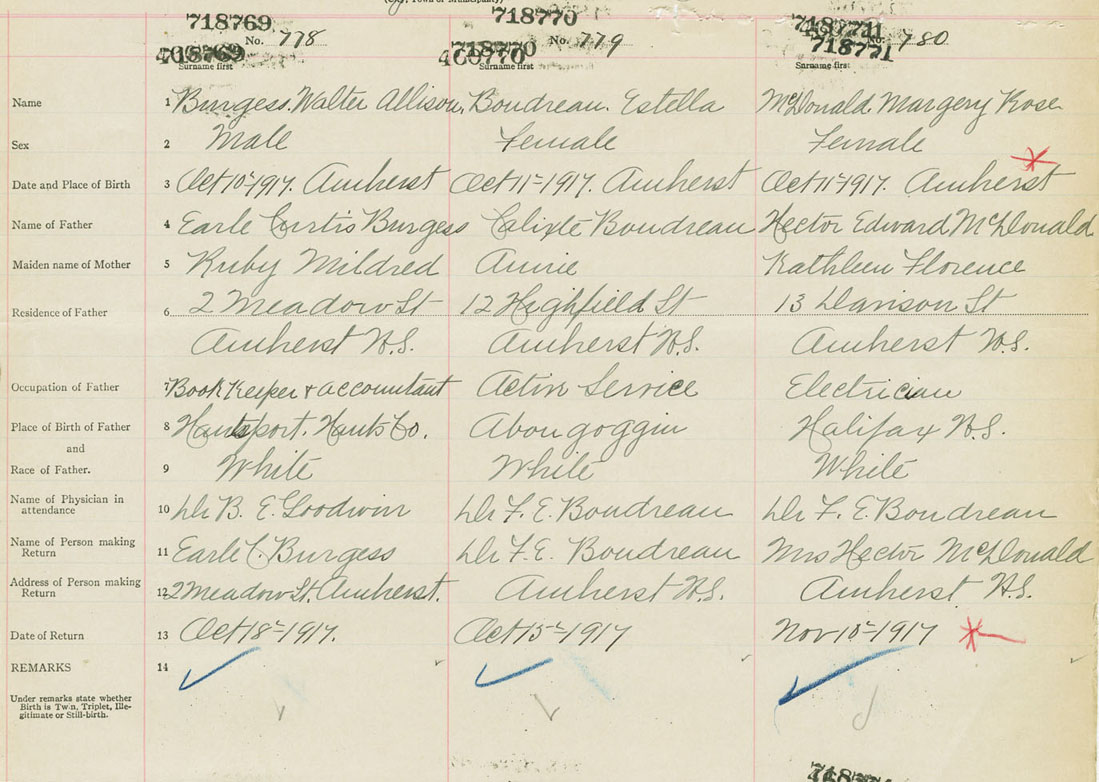 (City, Town or Municipality)
718769 718770 718771
No. 778 No. 779 No. 780
718769 718770 718771
460770
Surname first Surname first Surname first
Name 1 Burgess. Walter Allison. Boudreau. Estella McDonald Margery Rose
Sex 2 Male Female Female
Date and Place of Birth 3 Oct 10th 1917. Amherst Oct 11th 1917. Amherst Oct 11th 1917. Amherst
Name of Father 4 Earle Curtis Burgess Calixte Boudreau Hector Edward McDonald
Maiden name of Mother 5 Ruby Mildred Annie Kathleen Florence
Residence of Father 6 2 Meadow St 12 Highfield St 13 Davison St
Amherst N.S. Amherst N.S. Amherst N.S.
Occupation of Father 7 Book Keeper & accountant Active Service Electrician
Place of Birth of Father 8 Hantsport. Hants Co. Abougoggin Halifax N.S.
and
Race of Father. 9 White White White
Name of Physician in
attendance 10 Dr B. E. Goodwin Dr F. E. Boudreau Dr F. E. Boudreau
Name of Person making
Return 11 Earle C. Burgess Dr F. E. Boudreau Mrs Hector McDonald
Address of Person making
Return 12 2 Meadow St. Amherst. Amherst N.S. Amherst N.S.
Date of Return 13 Oct 18th 1917. Oct 15th 1917 Nov 10th 1917
REMARKS 14
Under remarks state whether
Birth is Twin, Triplet, Ille-
gitimate or Still-birth.